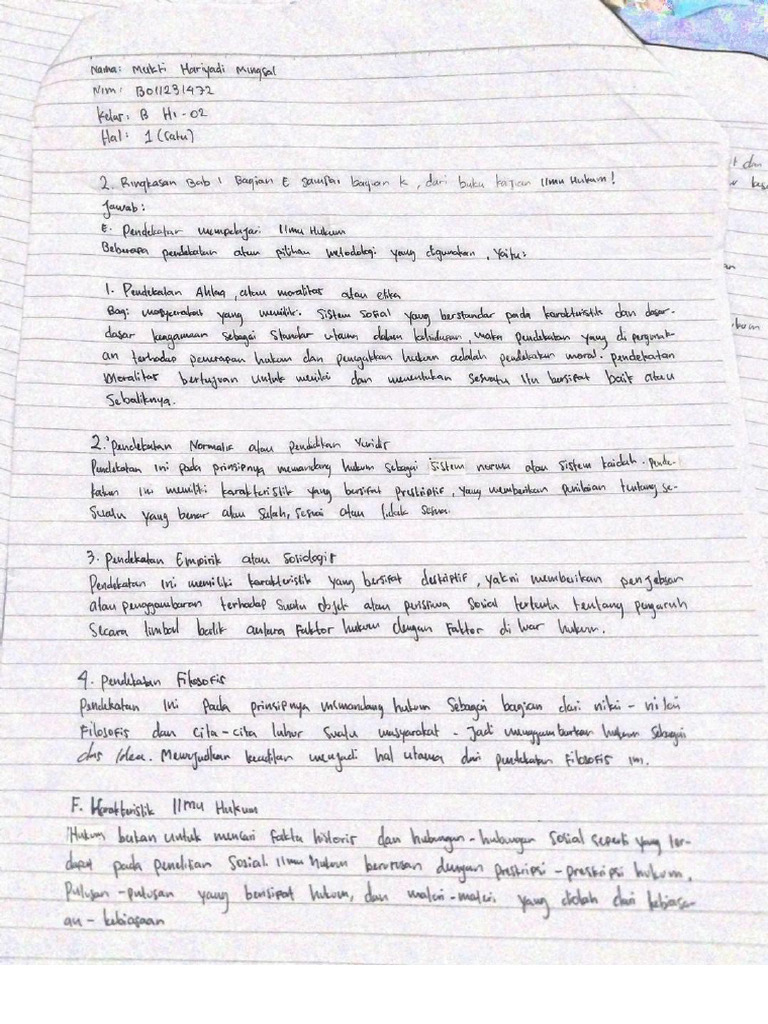 Nama: Mukti Hariyadi Mingsal
Nim: B011231472
Kelas: B HI-02
Hal: 1 (Satu)
2. Ringkasan Bab 1 Bagian E sampai bagian K, dari buku kajian Ilmu Hukum!
Jawab:
E. Pendekatan mempelajari Ilmu Hukum
Beberapa pendekatan atau pilihan metodologi yang digunakan, Yaitu:
1. Pendekatan Ahlaq, atau moralitas atau etika
Bagi masyarakat yang memiliki sistem sosial yang berstandar pada karakteristik dan dasar-
dasar keagamaan sebagai standar utama dalam kehidupan, maka pendekatan yang di pergunak-
an terhadap penerapan hukum dan penegakkan hukum adalah pendekatan moral. pendekatan
Moralitas bertujuan untuk menilai dan menentukan sesuatu itu bersifat baik atau
Sebaliknya.
2. Pendekatan Normatif atau Pendidikan Yuridis
Pendekatan ini pada prinsipnya memandang hukum sebagai sistem norma atau sistem kaidah. Pende-
katan ini memiliki karakteristik yang bersifat preskriptif, yang memberikan penilaian tentang se-
suatu yang benar atau salah, sesuai atau tidak sesuai.
3. Pendekatan Empirik atau Sosiologis
Pendekatan ini memiliki karakteristik yang bersifat deskriptif, yakni memberikan penjelasan
atau penggambaran terhadap suatu objek atau peristiwa sosial tertentu tentang pengaruh
Secara timbal balik antara faktor hukum dengan faktor di luar hukum.
4. Pendekatan Filosofis
Pendekatan ini pada prinsipnya memandang hukum sebagai bagian dari nilai-nilai
Filosofis dan cita-cita luhur suatu masyarakat. Jadi menggambarkan hukum sebagai
das Idea. Mewujudkan keadilan menjadi hal utama dari pendekatan filosofis ini.
F. Karakteristik Ilmu Hukum
Hukum bukan untuk mencari fakta historis dan hubungan-hubungan sosial seperti yang ter-
dapat pada penelitian sosial. Ilmu hukum berurusan dengan preskripsi-preskripsi hukum,
Putusan-putusan yang bersifat hukum, dan materi-materi yang diolah dari kebiasa-
an-kebiasaan